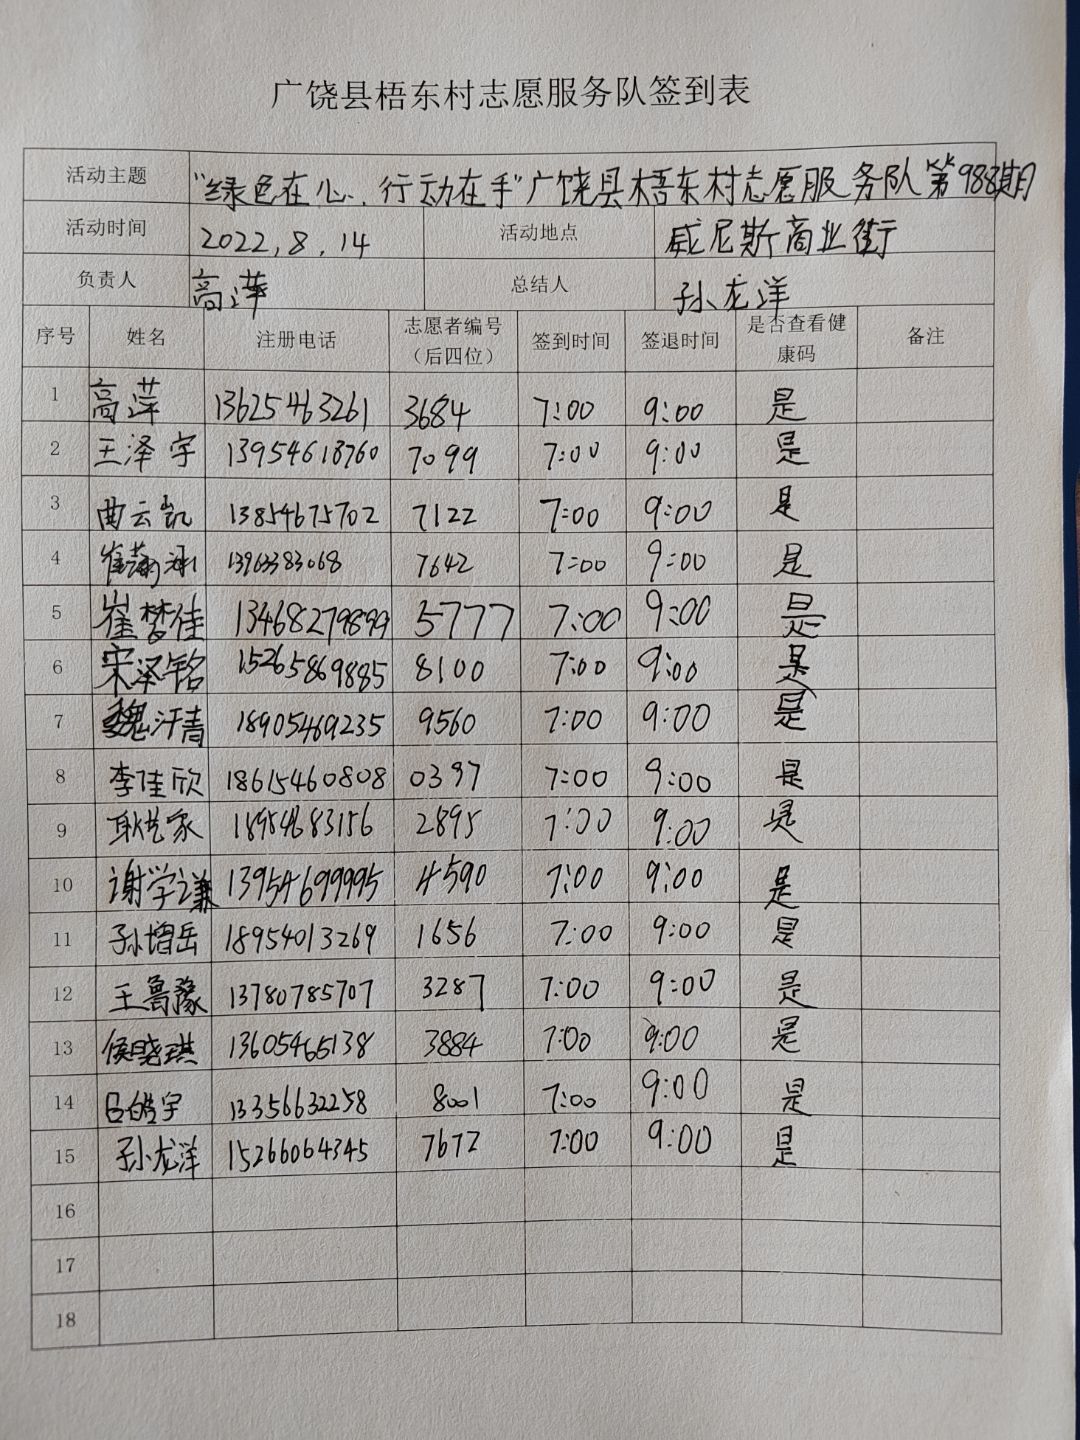 广饶县梧东村志愿服务队签到表
活动主题 “绿色在心、行动在手”广饶县梧东村志愿服务队第988期
活动时间 2022,8,14 活动地点 威尼斯商业街
负责人 高萍 总结人 孙龙洋
序号 姓名 注册电话 志愿者编号（后四位） 签到时间 签退时间 是否查看健康码 备注
1 高萍 13625463261 3684 7:00 9:00 是
2 王泽宇 13954618760 7099 7:00 9:00 是
3 曲云凯 13854675702 7122 7:00 9:00 是
4 崔瀚 13963383068 7642 7:00 9:00 是
5 崔梦佳 13468279899 5777 7:00 9:00 是
6 宋泽铭 15265869885 8100 7:00 9:00 是
7 魏汗青 18905469235 9560 7:00 9:00 是
8 李佳欣 18615460808 0397 7:00 9:00 是
9 耿艺家 18954683156 2895 7:00 9:00 是
10 谢学谦 13954699995 4590 7:00 9:00 是
11 孙增岳 18954013269 1656 7:00 9:00 是
12 王鲁豫 13780785707 3287 7:00 9:00 是
13 侯晓琪 13605465138 3884 7:00 9:00 是
14 吕皓宇 13356632258 8001 7:00 9:00 是
15 孙龙洋 15266064345 7672 7:00 9:00 是
16
17
18